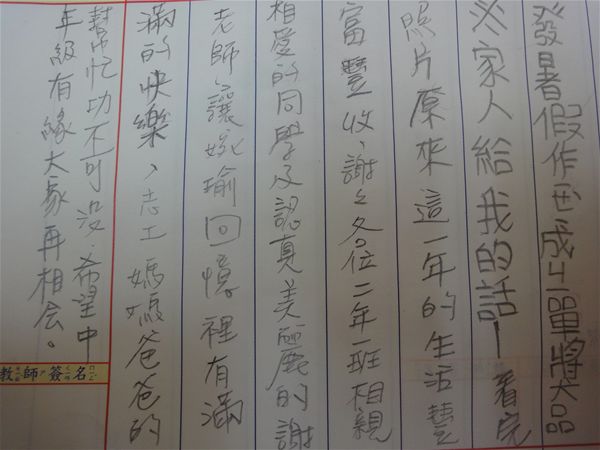 發暑假作業成山單獎品
※家人給我的話—看完
照片原來這一年的生活豐
富豐收、謝之各位二年一班相親
相愛的同學及認真美麗的謝
老師讓婗瑜回憶裡有滿
滿的快樂、志工媽媽爸爸的
幫忙功不可沒、希望中
年級有緣大家再相会。
教師簽名